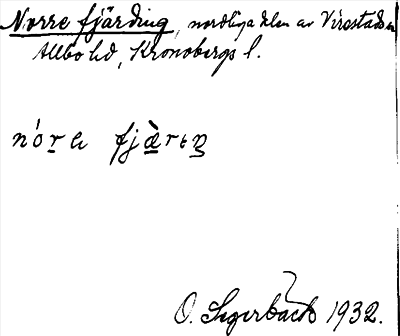 Norre fjärding, nordliga delen av Virestads sn
Allbo hd, Kronobergs l.
nórɐ fjæ̀rɛŋ
O. Segerbäck 1932.